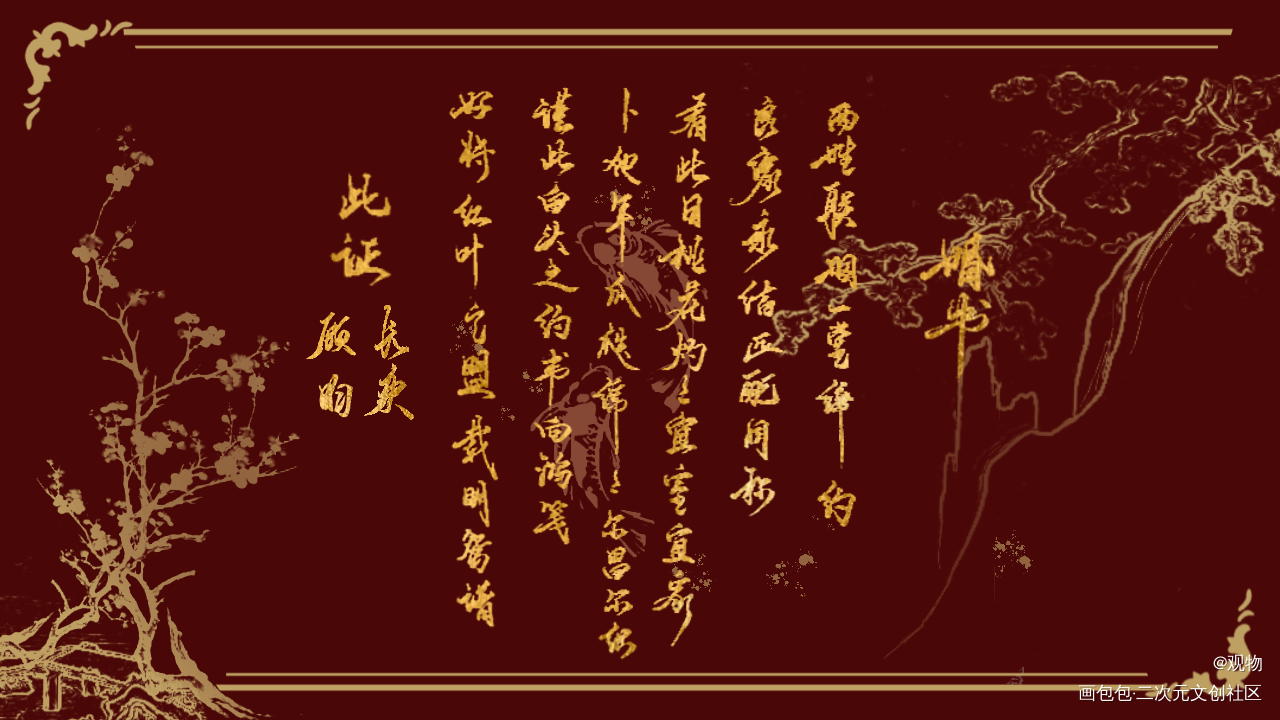 婚书
两姓联姻一堂缔约
良缘永结匹配同称
看此日桃花灼灼宜室宜家
卜他年瓜瓞绵绵尔昌尔炽
谨此白头之约书向鸿笺
好将红叶之盟载明鸳谱
此证
长庚
顾昀
@观物
画包包·二次元文创社区